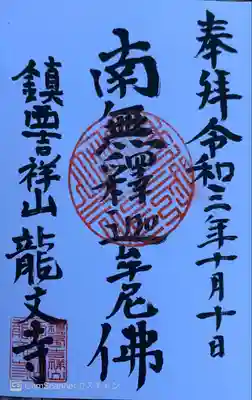 奉拝 令和三年十月十日
南無釋迦牟尼佛
鎮西吉祥山 龍文寺
CamScannerでスキャン